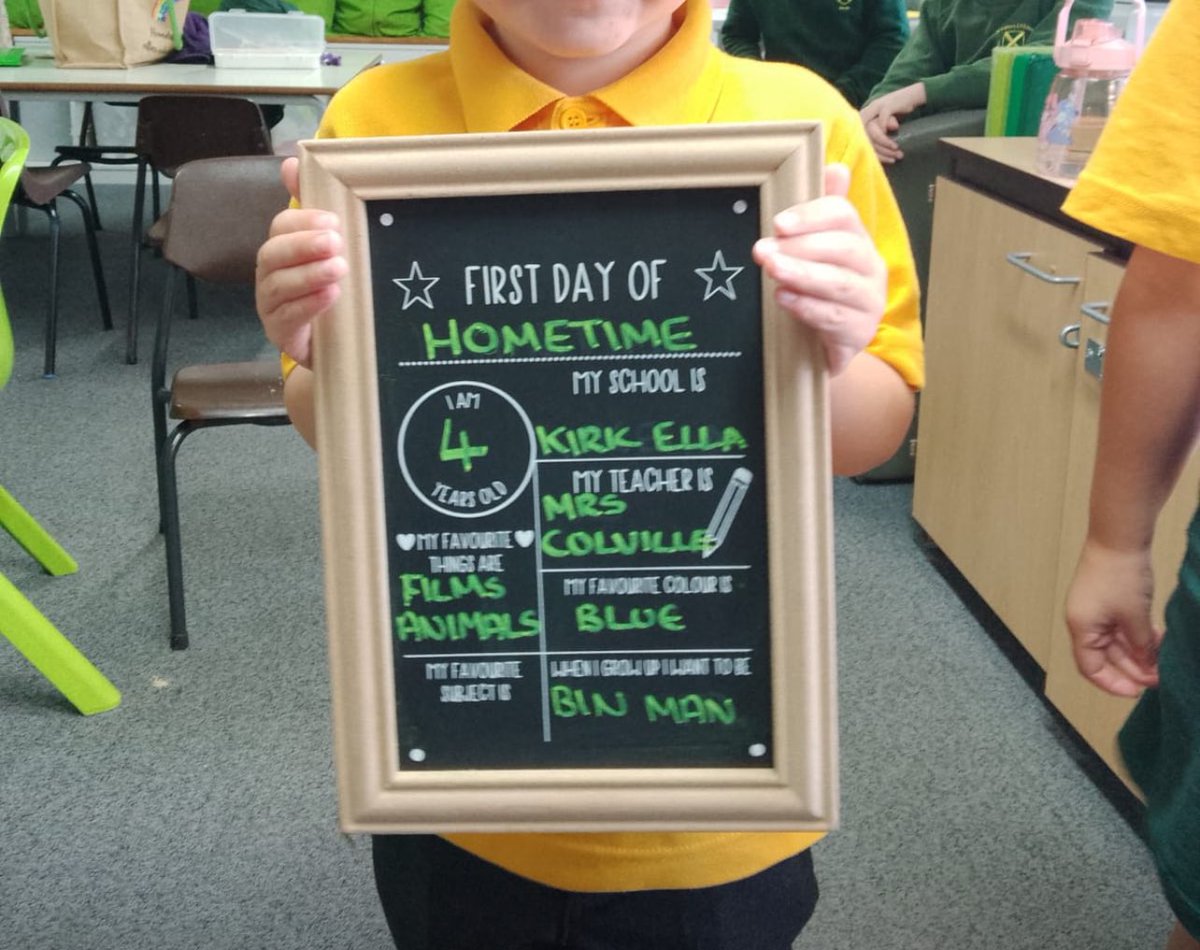 FIRST DAY OF
HOMETIME
I AM
4
YEARS OLD
MY SCHOOL IS
KIRK ELLA
MY TEACHER IS
MRS
COLVILLE
MY FAVOURITE
THINGS ARE
FILMS
ANIMALS
MY FAVOURITE COLOUR IS
BLUE
MY FAVOURITE
SUBJECT IS
WHEN I GROW UP I WANT TO BE
BIN MAN